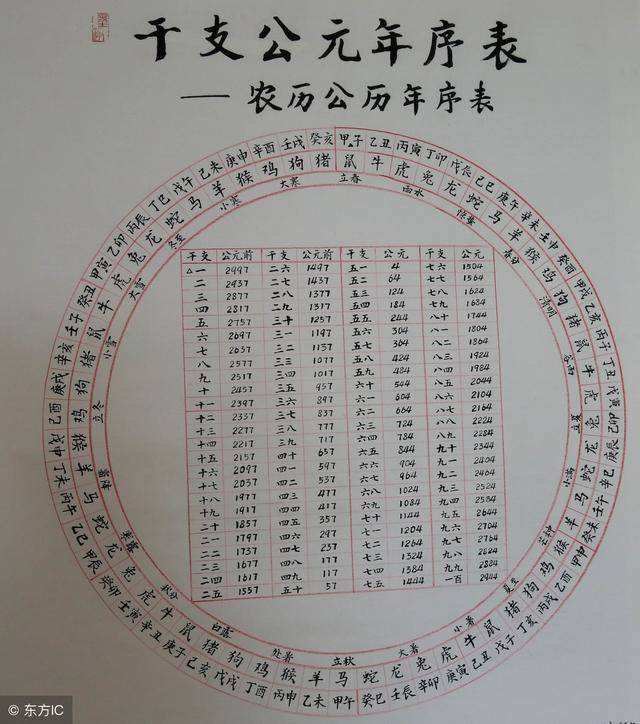 干支公元年序表
— 农历公历年序表
甲子 乙丑 丙寅 丁卯 戊辰 己巳 庚午 辛未 壬申 癸酉 甲戌 乙亥 丙子 丁丑 戊寅 己卯 庚辰 辛巳 壬午 癸未 甲申 乙酉 丙戌 丁亥 戊子 己丑 庚寅 辛卯 壬辰 癸巳 甲午 乙未 丙申 丁酉 戊戌 己亥 庚子 辛丑 壬寅 癸卯 甲辰 乙巳 丙午 丁未 戊申 己酉 庚戌 辛亥 壬子 癸丑 甲寅 乙卯 丙辰 丁巳 戊午 己未 庚申 辛酉 壬戌 癸亥
鼠 牛 虎 兔 龙 蛇 马 羊 猴 鸡 狗 猪 鼠 牛 虎 兔 龙 蛇 马 羊 猴 鸡 狗 猪 鼠 牛 虎 兔 龙 蛇 马 羊 猴 鸡 狗 猪 鼠 牛 虎 兔 龙 蛇 马 羊 猴 鸡 狗 猪 鼠 牛 虎 兔 龙 蛇 马 羊 猴 鸡 狗 猪
立春 雨水 惊蛰 春分 清明 谷雨 立夏 小满 芒种 夏至 小暑 大暑 立秋 处暑 白露 秋分 寒露 霜降 立冬 小雪 大雪 冬至 小寒 大寒
干支 公元前 干支 公元前 干支 公元 干支 公元
△一 2997 二六 1497 五一 4 七六 1504
二 2937 二七 1437 五二 64 七七 1564
三 2877 二八 1377 五三 124 七八 1624
四 2817 二九 1317 五四 184 七九 1684
五 2757 三十 1257 五五 244 八十 1744
六 2697 三一 1197 五六 304 八一 1804
七 2637 三二 1137 五七 364 八二 1864
八 2577 三三 1077 五八 424 八三 1924
九 2517 三四 1017 五九 484 八四 1984
十 2457 三五 957 六十 544 八五 2044
十一 2397 三六 897 六一 604 八六 2104
十二 2337 三七 837 六二 664 八七 2164
十三 2277 三八 777 六三 724 八八 2224
十四 2217 三九 717 六四 784 八九 2284
十五 2157 四十 657 六五 844 九十 2344
十六 2097 四一 597 六六 904 九一 2404
十七 2037 四二 537 六七 964 九二 2464
十八 1977 四三 477 六八 1024 九三 2524
十九 1917 四四 417 六九 1084 九四 2584
二十 1857 四五 357 七十 1144 九五 2644
二一 1797 四六 297 七一 1204 九六 2704
二二 1737 四七 237 七二 1264 九七 2764
二三 1677 四八 177 七三 1324 九八 2824
二四 1617 四九 117 七四 1384 九九 2884
二五 1557 五十 57 七五 1444 一百 2944
© 东方IC